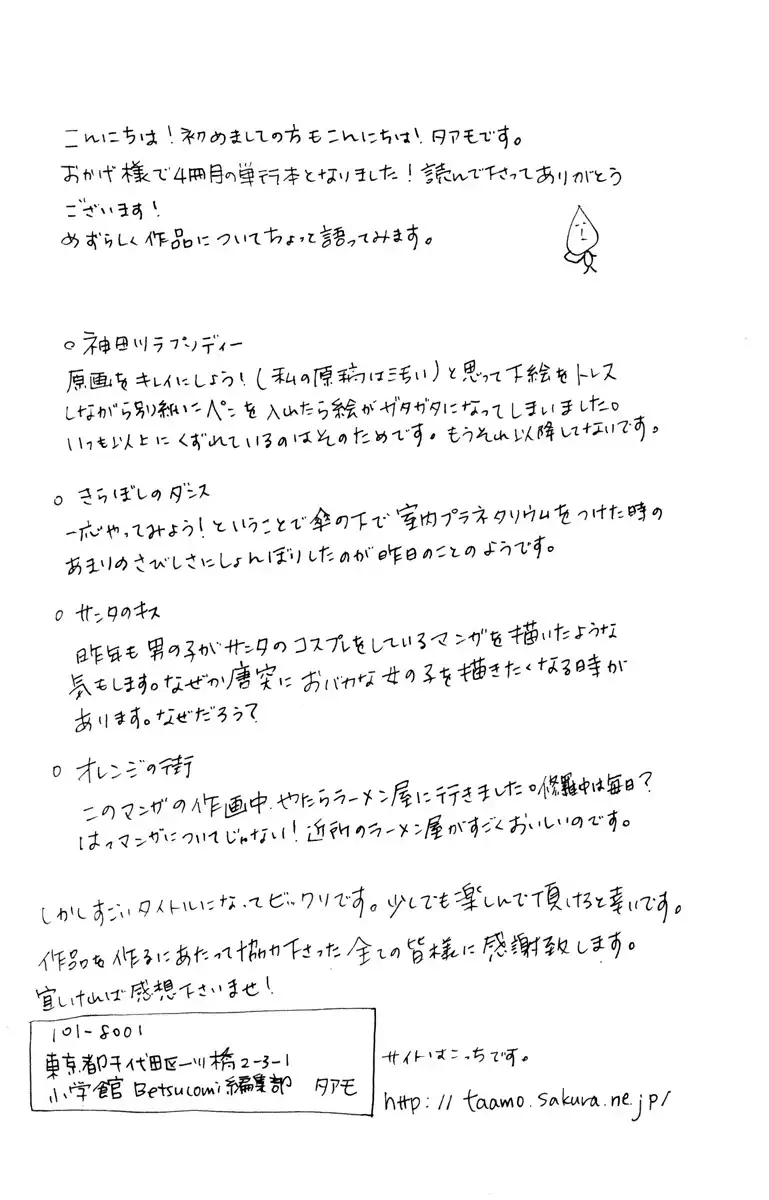 こんにちは!初めましての方もこんにちは!タアモです。
おかげ様で4冊目の単行本となりました!読んで下さってありがとう
ございます!
めずらしく作品についてちょっと語ってみます。
○ 神田川ラプンディー
原画をキレイにしよう!(私の原稿はきちい)と思って下絵をトレス
しながら別紙にペンを入れたら絵がガタガタになってしまいました。
いつも以上にくずれているのはそのためです。もうそれ以降してないです。
○ きらぼしのダンス
一応やってみよう!ということで傘の下で室内プラネタリウムをつけた時の
あまりのさびしさにしょんぼりしたのが昨日のことのようです。
○ サンタのキス
昨年も男の子がサンタのコスプレをしているマンガを描いたような
気もします。なぜか唐突におバカな女の子を描きたくなる時が
あります。なぜだろう?
○ オレンジの街
このマンガの作画中、やたらラーメン屋に行きました。修羅中は毎日?
はっマンガについてじゃない!近所のラーメン屋がすごくおいしいのです。
しかしすごいタイトルになってビックリです。少しでも楽しんで頂けると幸いです。
作品を作るにあたって協力下さった全ての皆様に感謝致します。
宜しければ感想下さいませ!
101-8001
東京都千代田区一ツ橋2-3-1
小学館 Betsucomi編集部 タアモ
サイトはこっちです。
http://taamo.sakura.ne.jp/